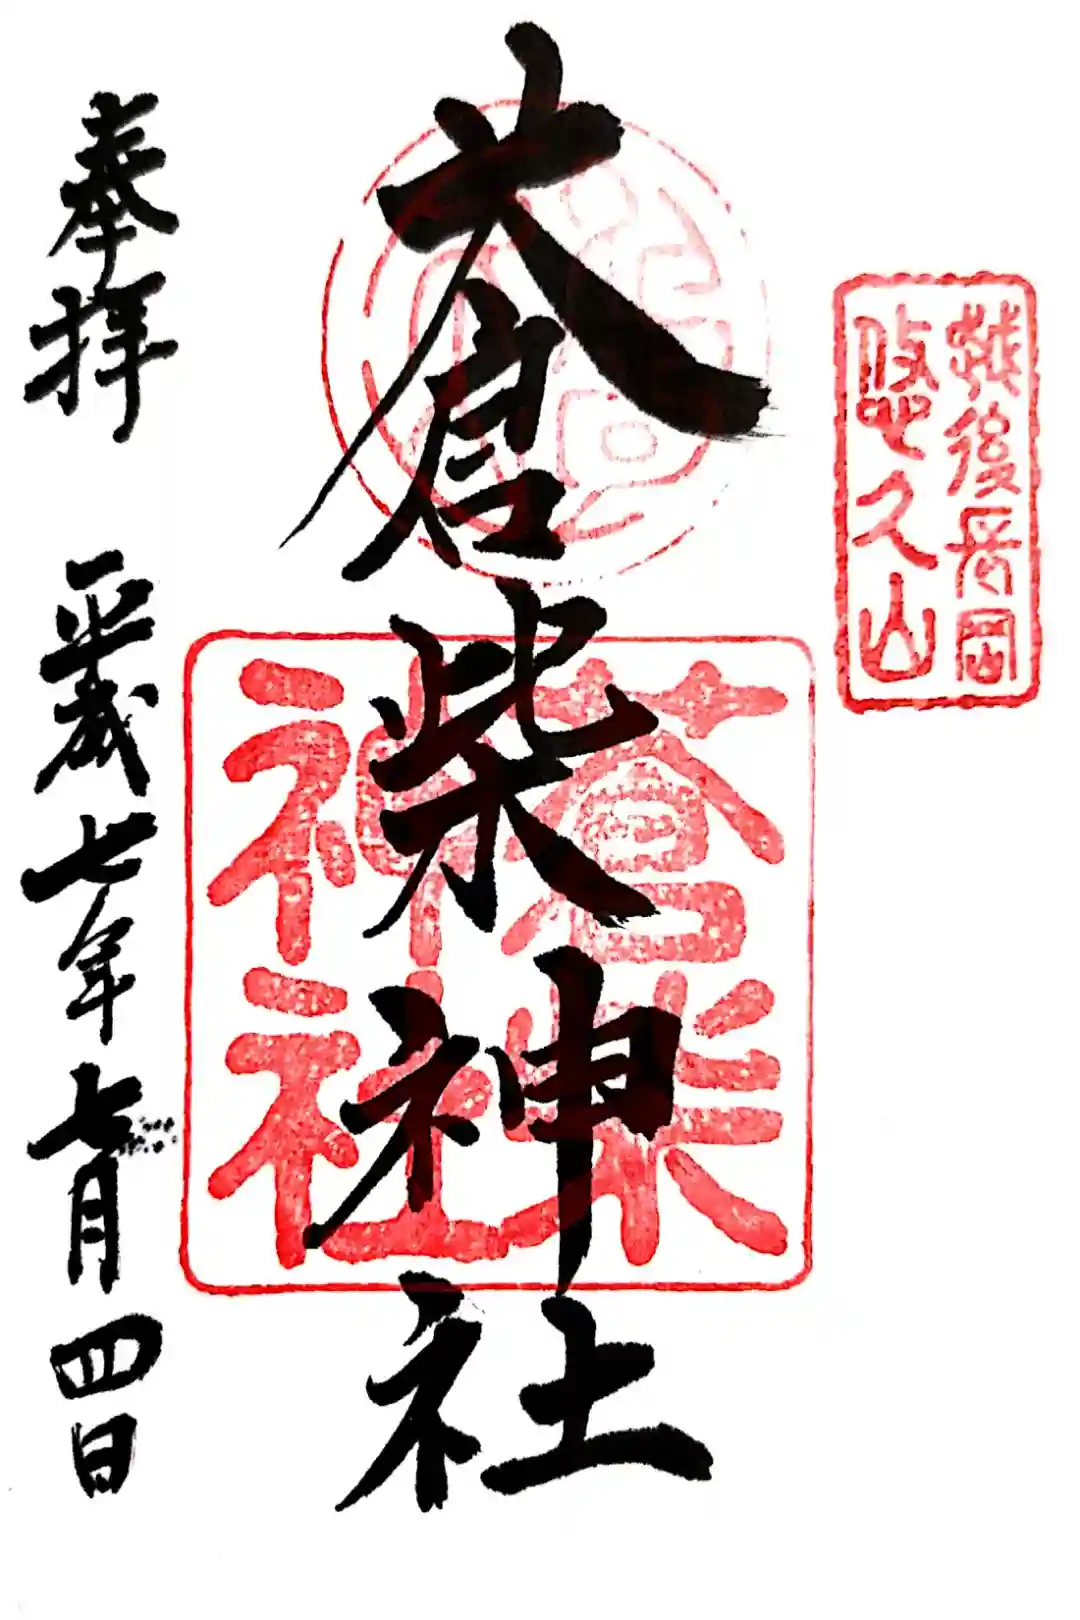 越後長岡
悠久山
蒼柴神社
蒼柴
神社
奉拝 平成七年七月四日